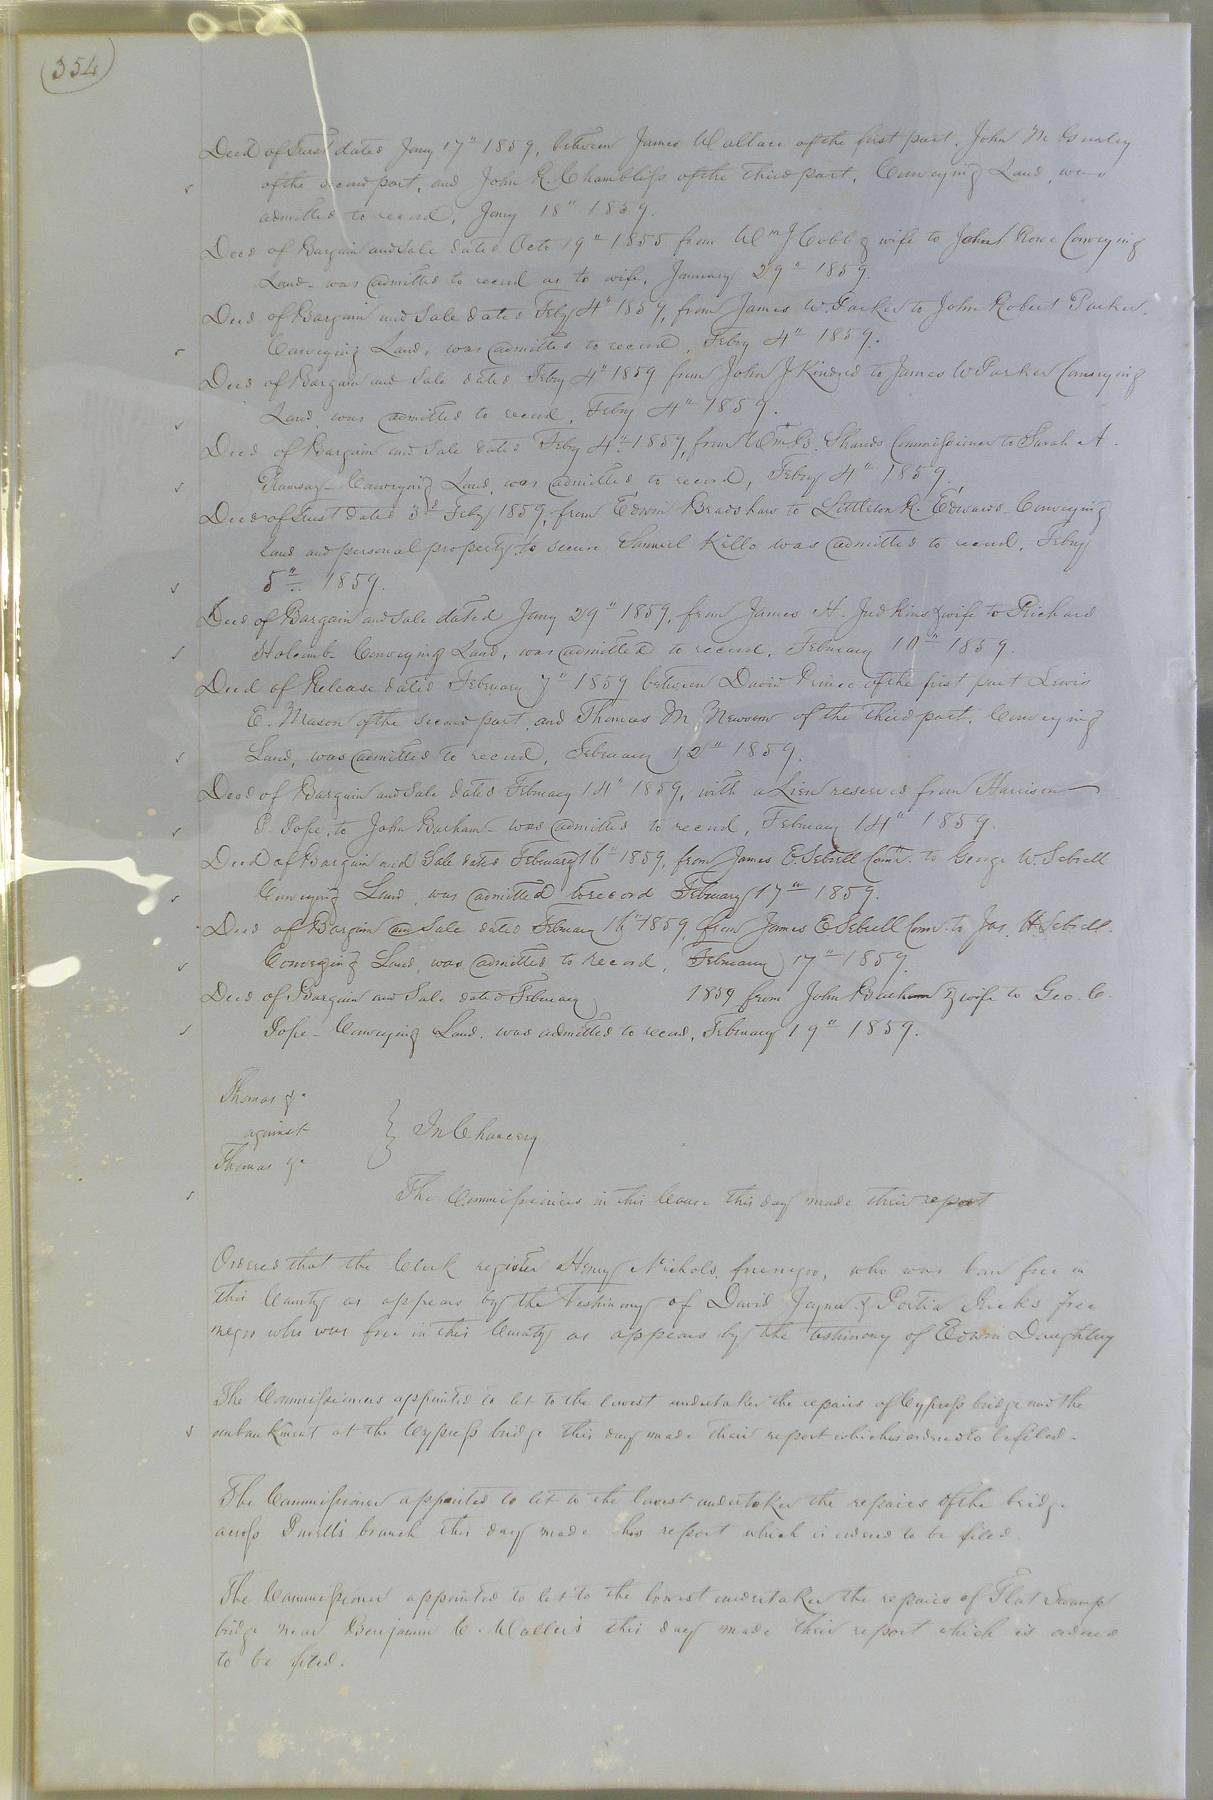 (354)
Deed of Trust dated Jany 17" 1859, between James Wallace of the first part, John M Gurley
of the second part, and John R. Chambliss of the third part, Conveying Land, were
admitted to record, Jany 18" 1859.
Deed of Bargain and Sale dated Octo 19" 1855 from Wm J Cobb & wife to John Rowe Conveying
Land - was admitted to record as to wife, January 29" 1859.
Deed of Bargain and Sale dated Feby 4" 1859, from James W Parker to John Robert Parker,
Conveying Land, was admitted to record, Feby 4" 1859.
Deed of Bargain and Sale dated Feby 4" 1859 from John J Kindred to James W Parker Conveying
Land, was admitted to record, Feby 4" 1859.
Deed of Bargain and Sale dated Feby 4" 1859, from Wm B. Shands Commissioner to Sarah A.
Ramsay - Conveying Land, was admitted to record, Feby 4" 1859,
Deed of Trust dated 3d Feby 1859, from Edwin Bradshaw to Littleton R. Edwards Conveying
Land and personal property to secure Samuel Kello was admitted to record, Feby
5" 1859.
Deed of Bargain and Sale dated Jany 29" 1859, from James H. Judkins & wife to Richard
Holcomb - Conveying Land, was admitted to record, February 10" 1859.
Deed of Release dated February 7" 1859 between David Prince of the first part Lewis
E. Mason of the second part, and Thomas M Newsom of the third part, Conveying
Land, was admitted to record, February 12" 1859.
Deed of Bargain and Sale dated February 14" 1859, with a Lien reserved from Harrison
P. Pope, to John Barham - was admitted to record, February 14" 1859.
Deed of Bargain and Sale dated February 16" 1859, from James E. Sebrell Comr. to George W. Sebrell
Conveying Land, was admitted to record February 17" 1859.
Deed of Bargain and Sale dated February 16" 1859, from James E Sebrell Comr. to Jas. H. Sebrell.
Conveying Land, was admitted to record, February 17" 1859.
Deed of Bargain and Sale dated February 1859 from John Barham & wife to Geo. C.
Pope - Conveying Land. was admitted to record, February 19" 1859.
Thomas &c
against } In Chancery
Thomas &c
The Commissioners in this Cause this day made their report
Ordered that the Clerk register Henry Nichols, free negro, who was born free in
this County as appears by the testimony of David Joyner & Portia Ricks free
negro who was free in this County as appears by the testimony of Edwin Daughtrey
The Commissioners appointed to let to the lowest undertaker the repairs of Cypress bridge and the
embankment at the Cypress bridge this day made their report which is ordered to be filed.
The Commissioner appointed to let to the lowest undertaker the repairs of the bridge
across branch this day made his report which is ordered to be filed
The Commissioner appointed to let to the lowest undertaker the repairs of Flat Swamp
bridge near Benjamin C. Waller's this day made their report which is ordered
to be filed.